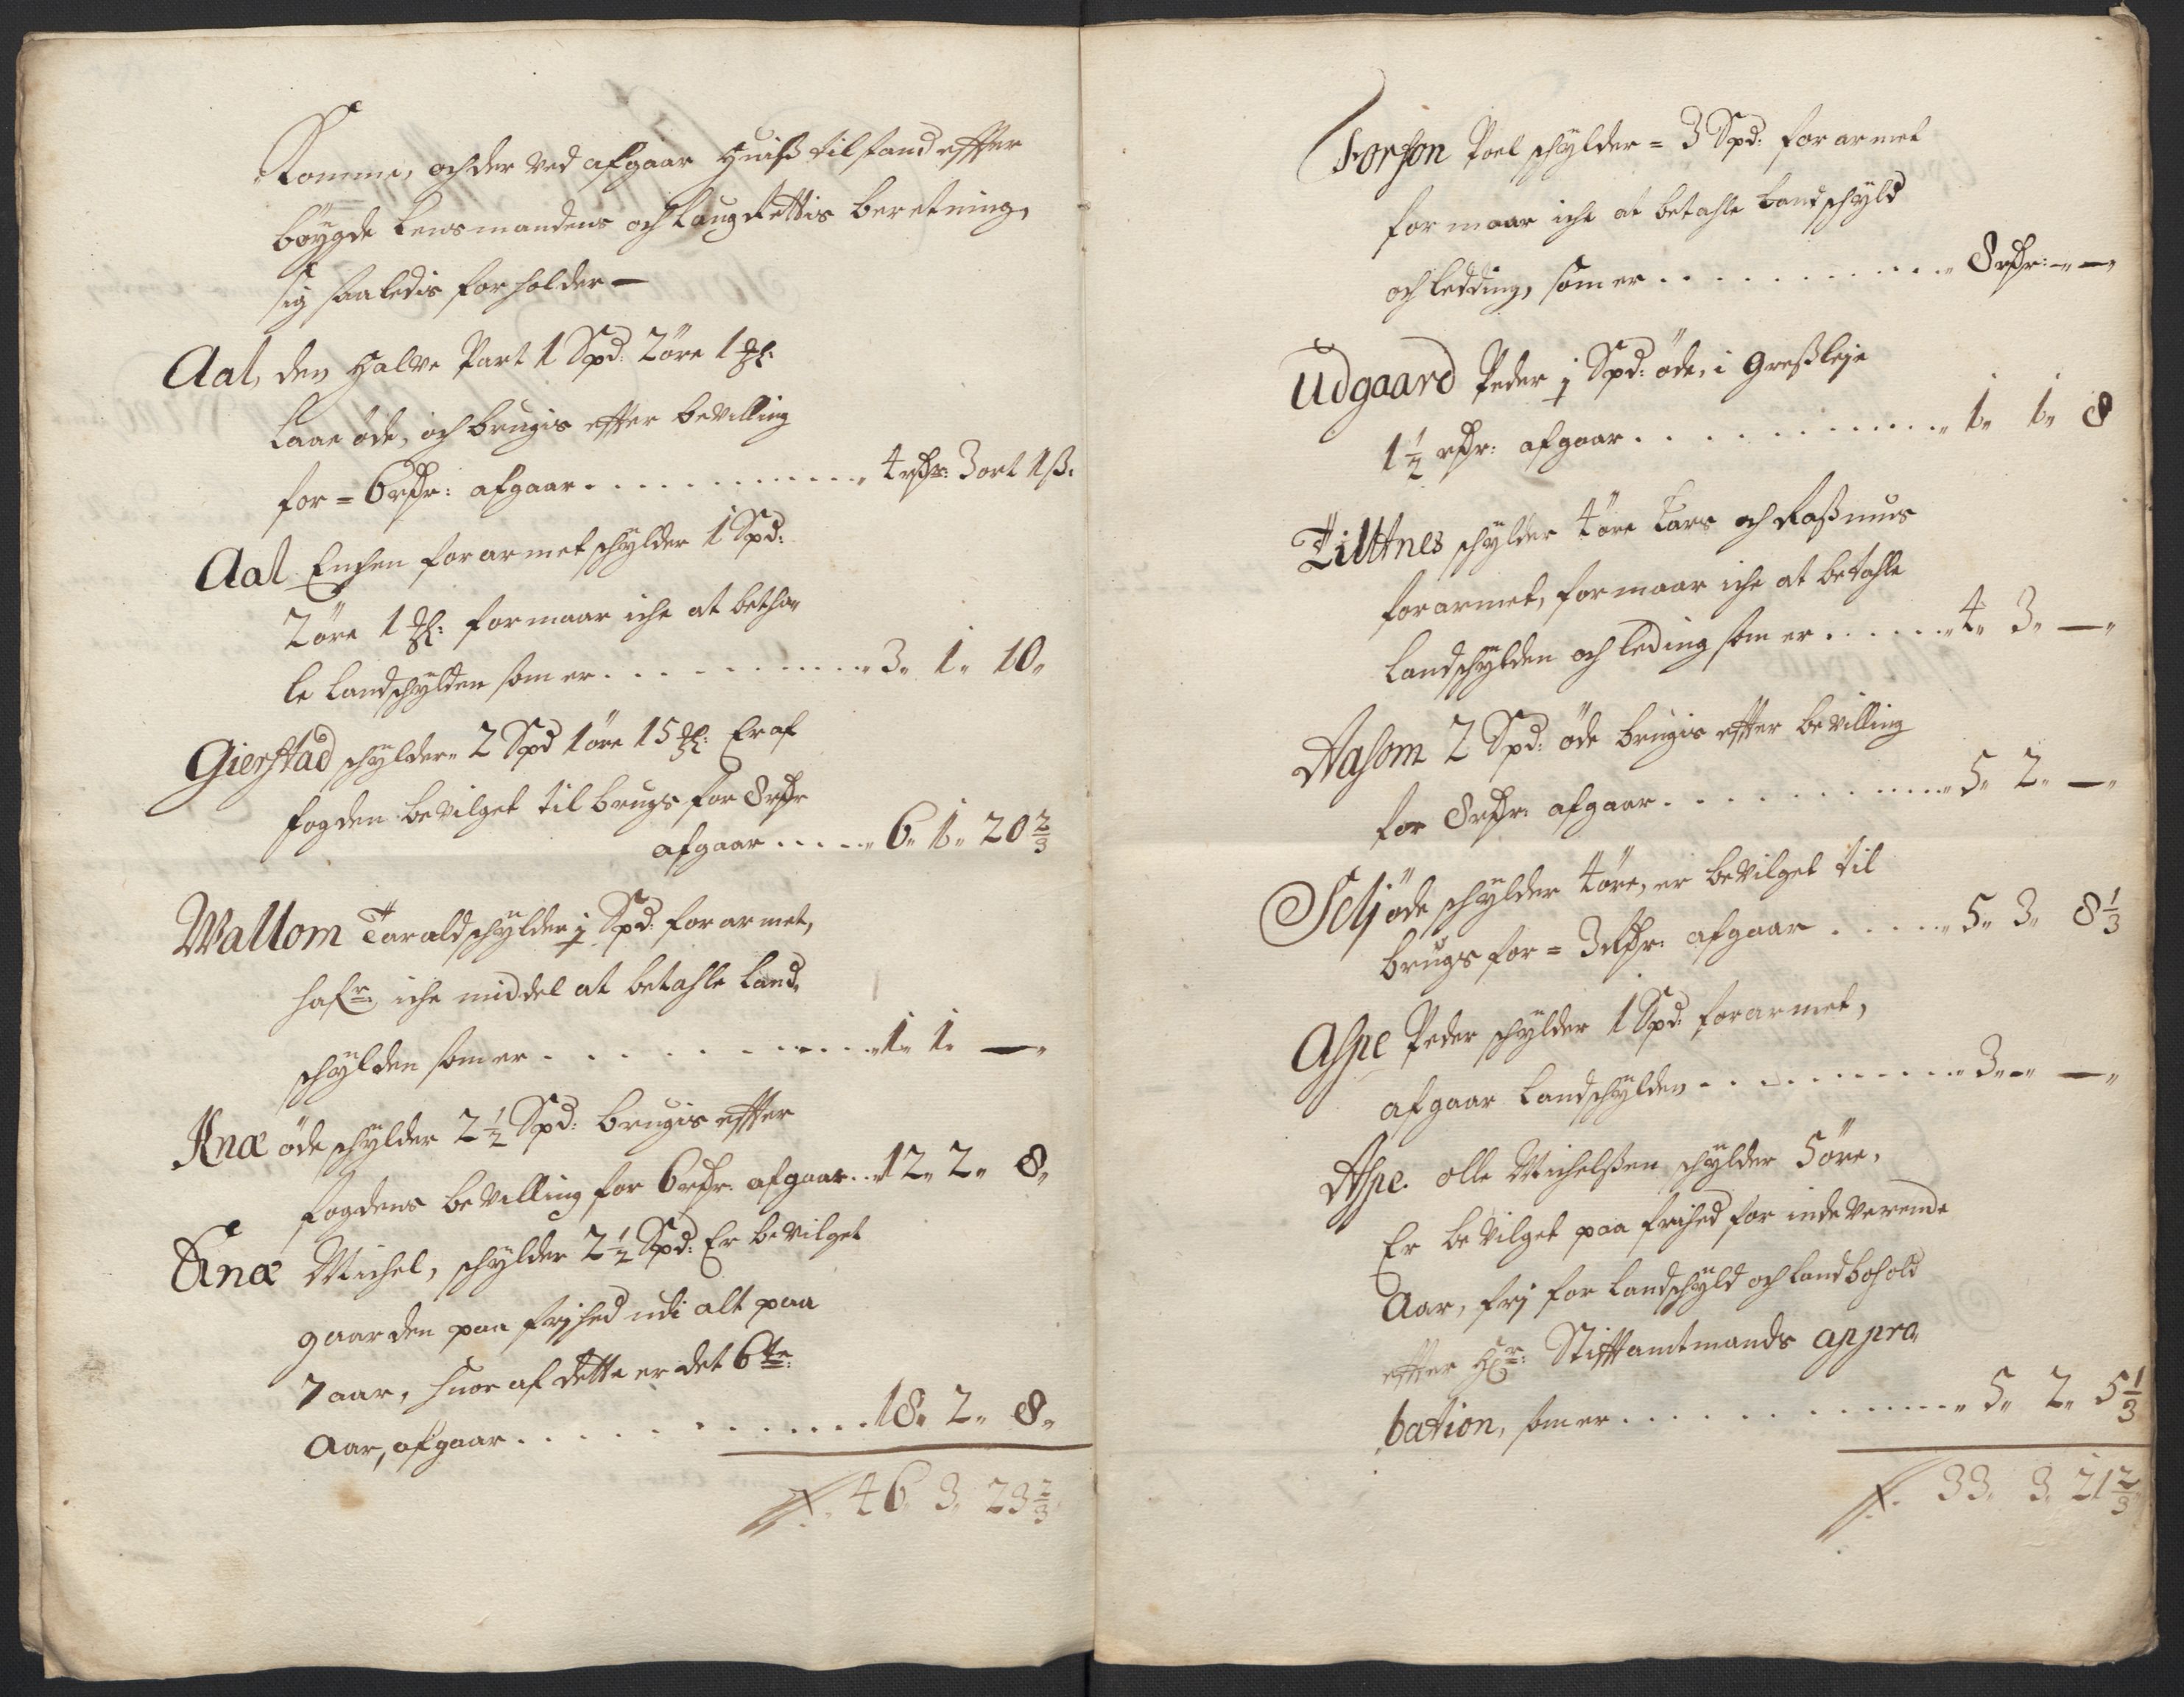 Komme, och der ved afgaar huis tilstand effter
böygde Lensmandens och Laug Rettis beretning,
sig saaledis forholder —
Aal, den halve Part 1 Spd: 2 öre 1
Laae øde, och brugis effter bevilling
for = 6 rdr: afgaar . . . . . . . . . . 4 rdr: 3 ort 1 ß:
Aal Enchen forarmet schylder 1 Spd:
2 öre 1 formaar iche at betha„
le Landschylden som er . . . . . . . . . 3„ 1„ 10„
Gierstad schylder„ 2 Spd 1 öre 15 Er af
fogden bevilget til brugs for 8 rdr
afgaar . . . . . 6„ 1„ 20 2/3
Wallom Tarald schylder 1 Spd: forarmet,
hafr: iche middel at betahle Land„
schylden som er . . . . . . . . . . 1„ 1„ —„
Knæ öde schylder 2 1/2 Spd: brugis effter
fogdens bevilling for 6 rdr: afgaar . . 12„ 2„ 8„
Knæ Michel, schylder 2 1/2 Spd: Er bevilget
gaarden paa frjhed udi alt paa
7 aar, huor af dette er det 6te:
Aar, afgaar . . . . . . . . . . . 18„ 2„ 8„
46„ 3„ 23 2/3
Forson Poel schylder = 3 Spd: forarmet
formaar iche at betahle Landschyld
och Ledding, som er . . . . . . . . . . 8 rdr: —„ —„
Udgaard Peder 1 Spd: öde, i Gresleje
1 1/2 rdr: afgaar . . . . . . . . . . 1„ 1„ 8
Tilttnes schylder 4 öre Lars och Rasmus
forarmet, formaar iche at betahle
Landschylden och Leding som er . . . . . . 4„ 3„ —„
Aasom 2 Spd: öde brugis effter bevilling
for 8 rdr: afgaar . . . . . . . . . . 5„ 2„ —„
Selj öde schylder 4 öre, er bevilget til
brugs for = 3 rdr: afgaar . . . . . 5„ 3„ 8 1/3
Aspe Peder schylder 1 Spd: forarmet,
afgaar Landschylden . . . . . . . . . . 3„ —„ —„
Aspe. olle Michelsen schylder 5 öre,
Er bevilget paa frihed for indeverende
Aar, frj for Landschyld och Landbohold
effter Hr: Stifftamtmands appro„
bation, som er . . . . . . . . . . 5„ 2„ 5 1/3
33„ 3„ 21 2/3